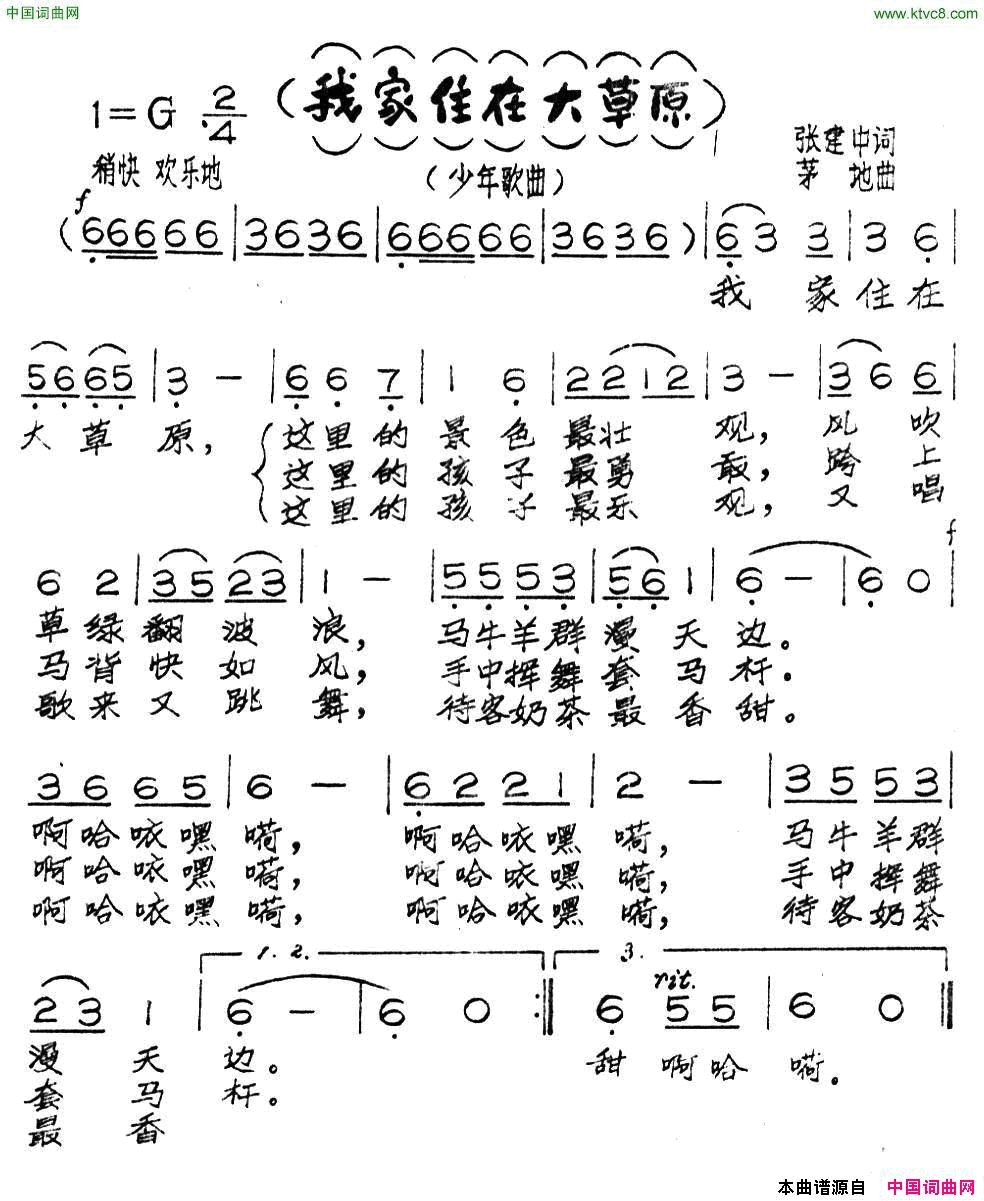 中国词曲网 www.ktvc8.com
(我家住在大草原)
1=G 2/4
张建中词
稍快 欢乐地
(少年歌曲)
茅 地曲
f
(666666|3636|666666|3636)|63 3|3 6|
我 家住在
5665|3 -|66 7|1 6|2212|3 -|36 6|
大草原,这里的景色最壮 观,风 吹
这里的孩子最勇 敢,跨 上
这里的孩子最乐 观,又 唱
f
6 2|35 23|1 -|5553|56 1|6 -|6 0|
草绿翻波 浪,马牛羊群漫天边。
马背快如 风,手中挥舞套马杆。
歌来又跳 舞,待客奶茶最香甜。
36 65|6 -|62 21|2 -|35 53|
啊哈咴嘿 嗬,啊哈咴嘿 嗬,马牛羊群
啊哈咴嘿 嗬,啊哈咴嘿 嗬,手中挥舞
啊哈咴嘿 嗬,啊哈咴嘿 嗬,待客奶茶
1. 2. 3.
rit.
23 1|6 -|6 0:‖6 55|6 0‖
漫 天 边。 甜 啊哈 嗬。
套 马 杆。
最 香
本曲谱源自 中国词曲网